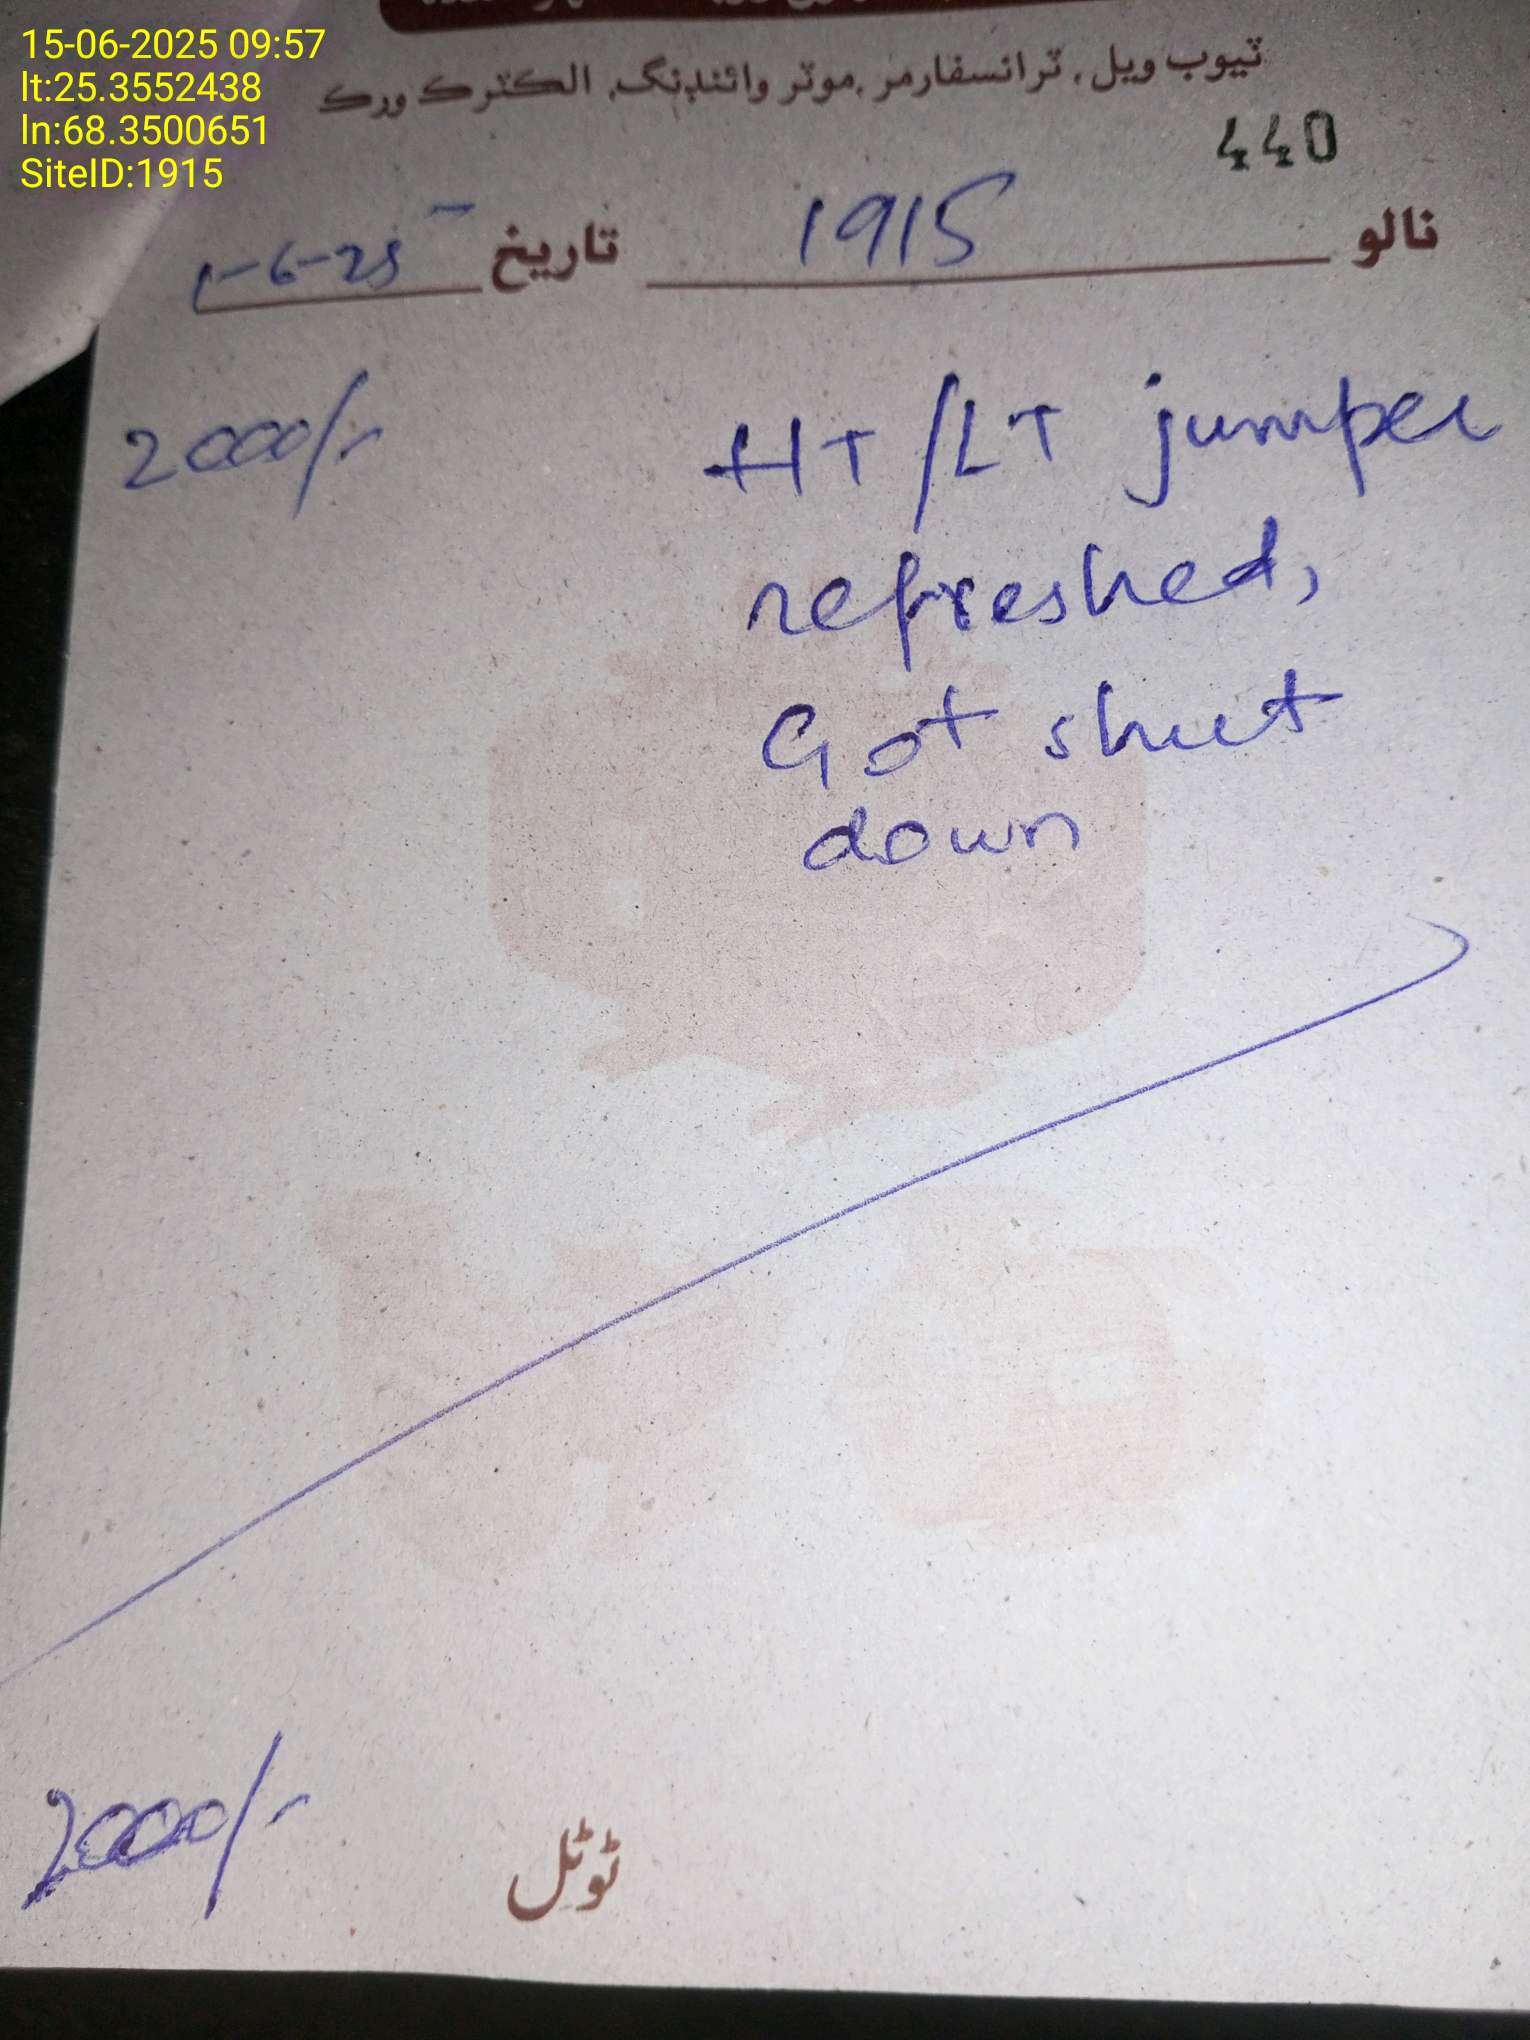 15-06-2025 09:57
lt:25.3552438
ln:68.3500651
SiteID:1915
ٽيوب ويل، ٽرانسفارمر، موٽر وائنڊنگ، الڪٽرڪ ورڪ
440
نالو 1915 تاريخ 1-6-25
HT/LT jumper 2000/-
refreshed,
Got shut
down
ٽوٽل 2000/-